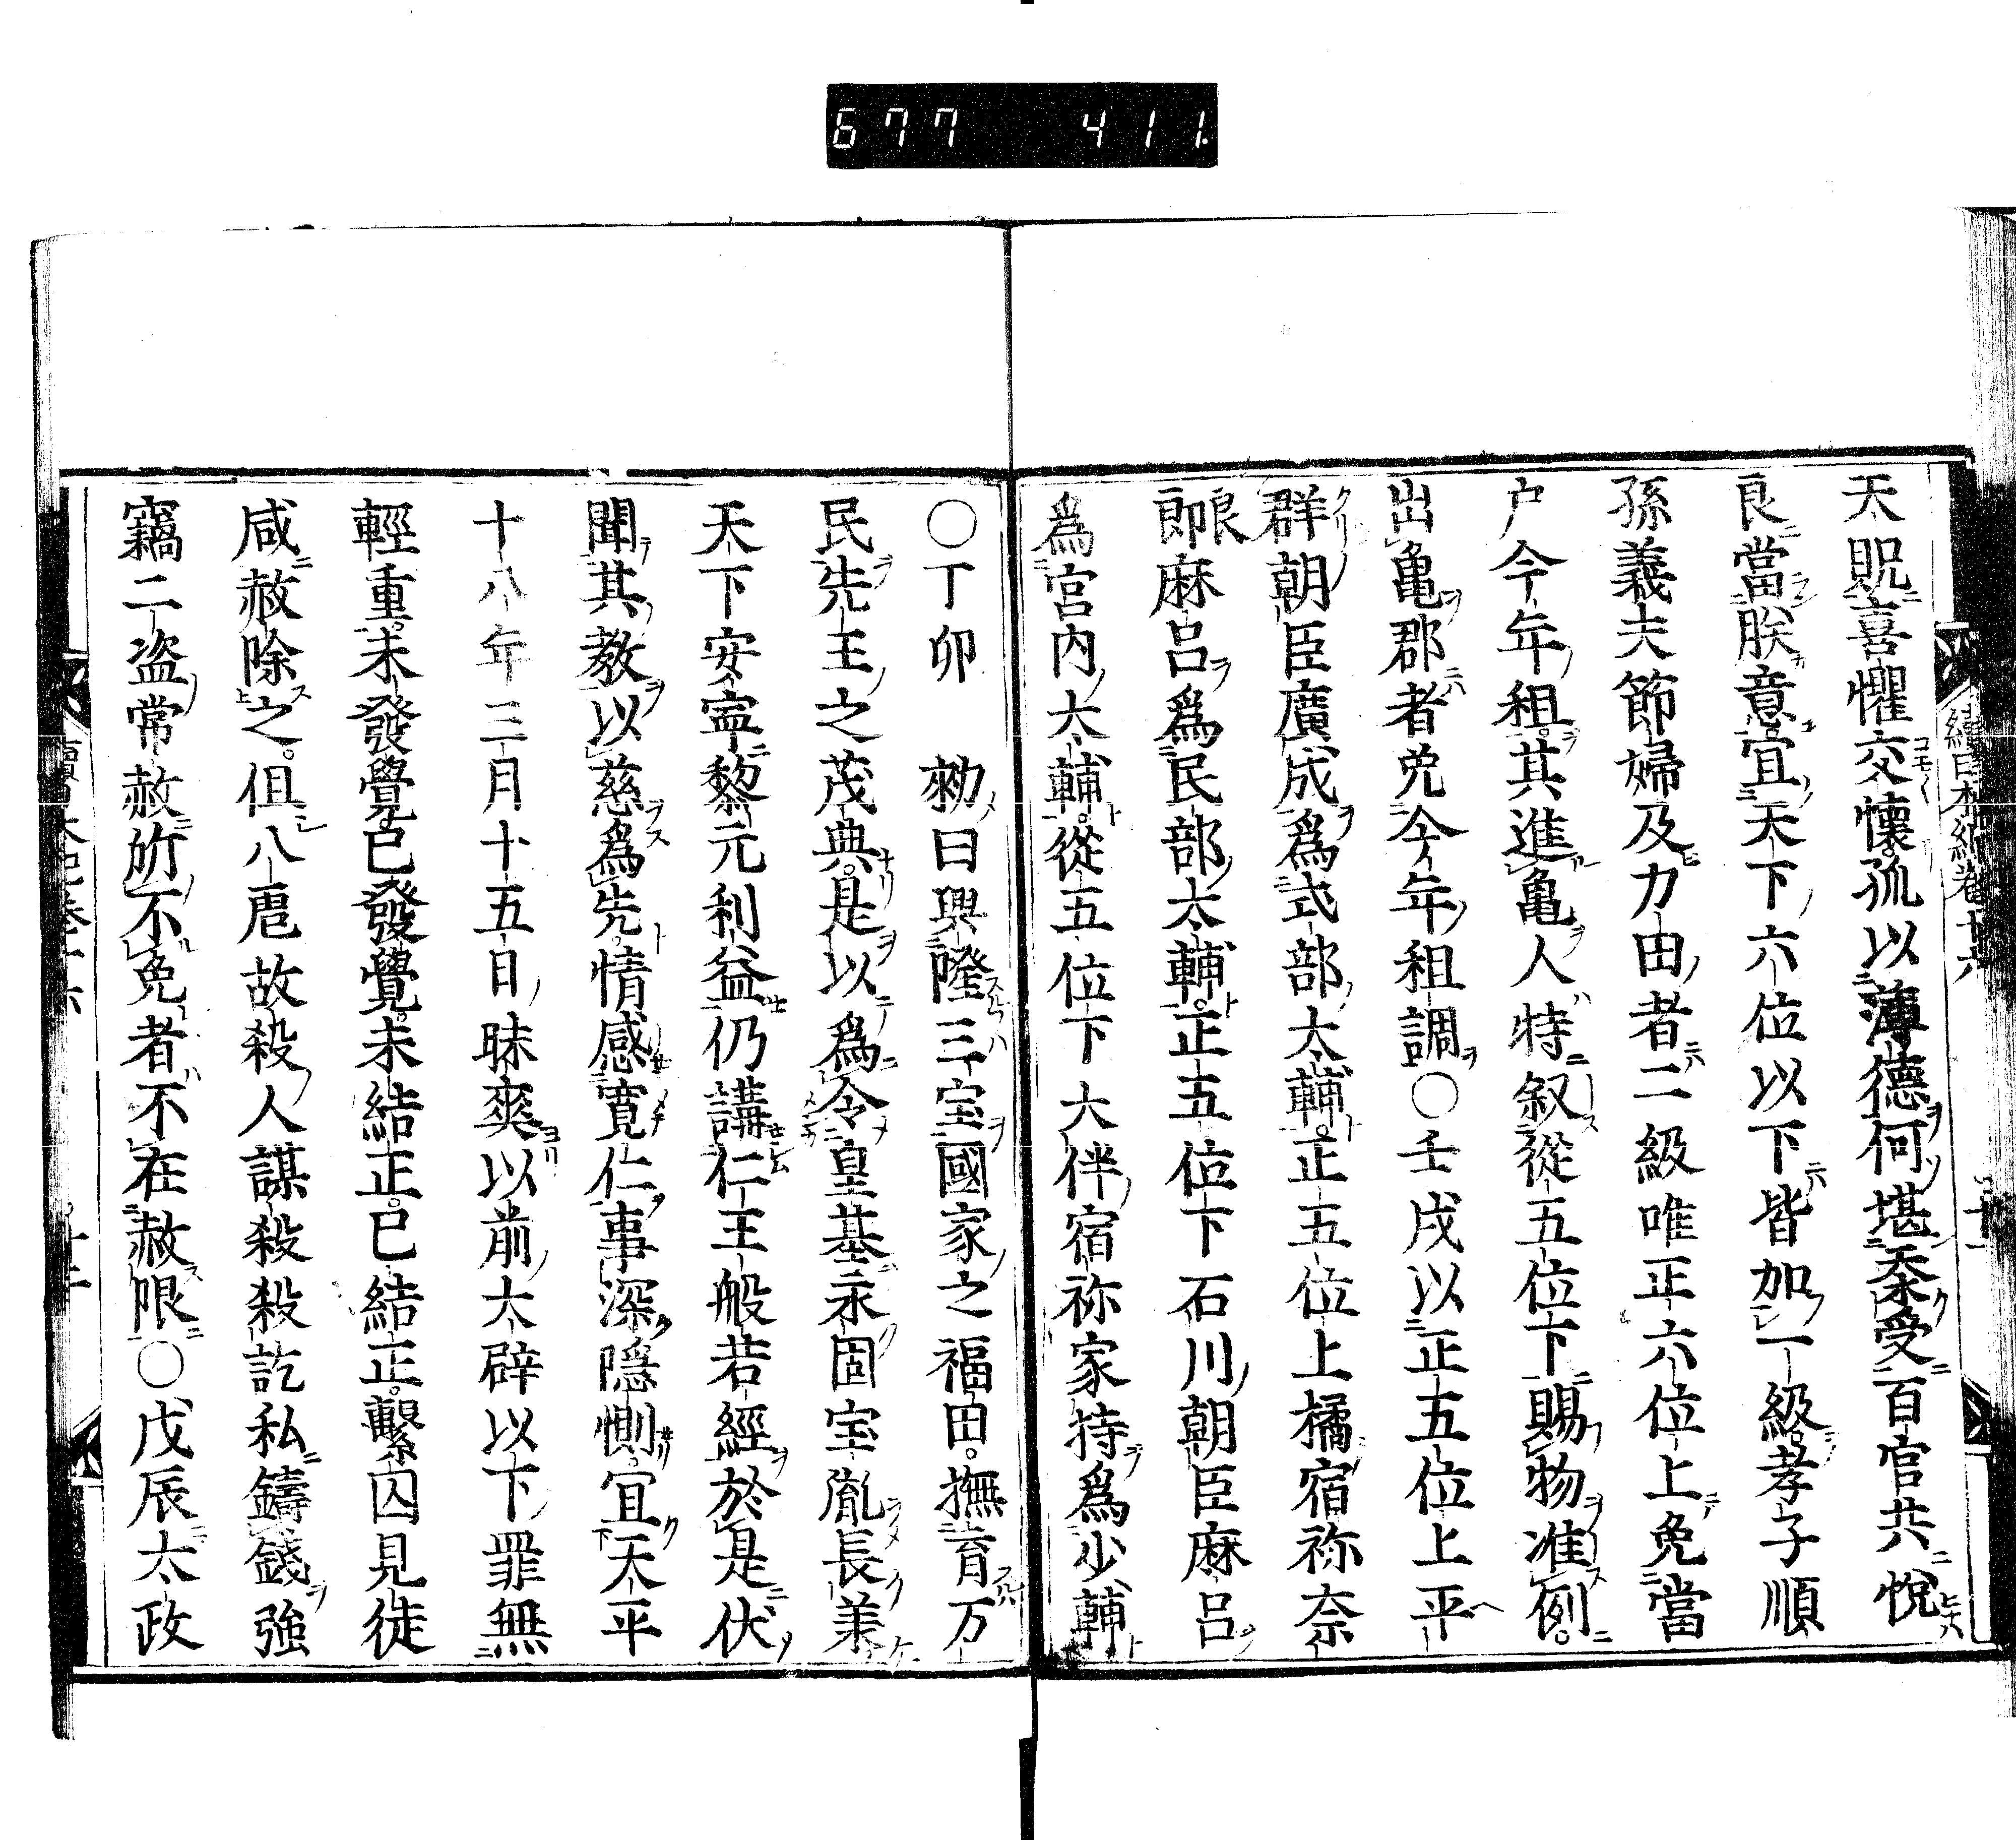 677 411
續日本紀卷十六
天貺喜懼交懷。孤以薄德何堪忝受百官共悅
良當朕意。宜天下六位以下皆加一級。孝子順
孫義夫節婦及力田者二級唯正六位上免當
户今年租。其進亀人特叙從五位下賜物准例。
出亀郡者免今年租調〇壬戌以正五位上平
群朝臣廣成爲式部大輔。正五位上橘宿祢奈
良
郎麻呂爲民部大輔。正五位下石川朝臣麻呂
爲宮内大輔。從五位下大伴宿祢家持爲少輔
〇丁卯 勑曰興隆三宝國家之福田。撫育万
民先王之茂典。是以爲令皇基永固宝胤長美
天下安寍黎元利益仍講仁王般若經於是伏
聞其教以慈爲先。情感寛仁事深隱惻。宜天平
十八年三月十五日昧爽以前大辟以下罪無
輕重。未發覺已發覺。未結正。已結正。繫囚見徒
咸赦除之。但八虐故殺人謀殺殺訖私鑄錢強
竊二盗常赦所不免者不在赦限〇戊辰太政